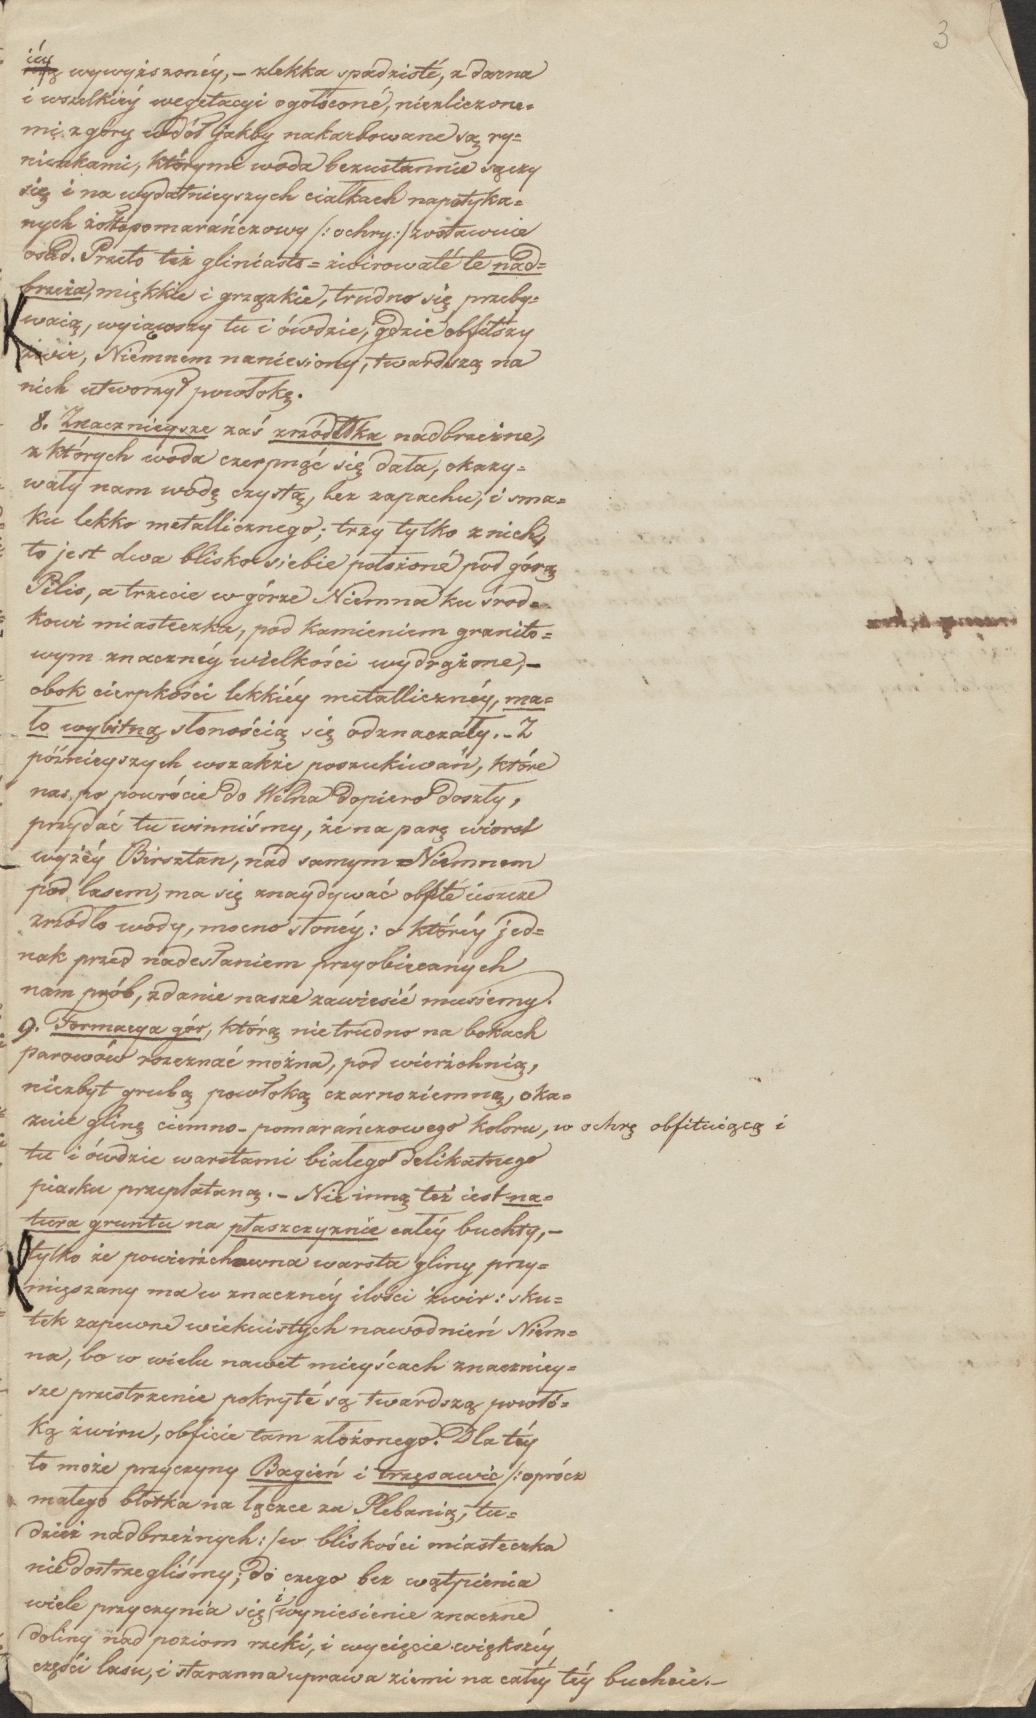 3
iéy wywyższonéy, – zlekka spadzisté, z darna
i wszelkiéy wegetacyi ogołoconé, niezliczone-
mi z góry wdół jakby nakarbowane są ry-
nienkami, którymi woda bezustannie sączy
się i na wydatnieyszych ciałkach napotyka-
nych żółtopomarańczowy /: ochry :/ zostawuie
osad. Przeto też gliniasto = żwirowaté te nad-
brzeża, miękkie i grzązkie, trudno się przeby-
waią, wyiąwszy tu i ówdzie, gdzie obfitszy
żwir, Niemnem naniesiony, twardszą na
nich utworzył powłokę.
8. Znacznieysze zaś zrzódłka nadbrzeżne,
z których woda czerpnąć się dała, okazy-
wały nam wodę czystą, bez zapachu, i sma-
ku lekko metallicznego; trzy tylko z nich,
to jest dwa blisko siebie położoné pod górą
Pilis, a trzecie w górze Niemna ku środ-
kowi miasteczka, pod kamieniem granito-
wym znacznéy wielkości wydrążone, –
obok cierpkości lekkiéy metallicznéy, ma-
ło wybitną słonością się odznaczały. – Z
późnieyszych wszakże poszukiwań, które
nas po powrócie do Wilna dopiero doszły,
przydać tu winniśmy, że na parę wiorst
wyżéy Birsztan, nad samym Niemnem
pod lasem, ma się znaydywać obfité ieszcze
zrzódło wody, mocno słonéy: o któréy jed-
nak przed nadesłaniem przyobiecanych
nam prób, zdanie nasze zawiesić musiemy.
9. Formacya gór, którą nietrudno na bokach
parowów rozeznać można, pod wierzchnią,
niezbyt grubą powłoką czarnoziemną, oka-
zuie glinę ciemno-pomarańczowego koloru, w ochrę obfituiącą i
tu i ówdzie warstami białego delikatnego
piasku przeplataną. – Nie inną też iest na-
tura gruntu na płaszczyznie całéy buchty, –
tylko że powierzchowna warsta gliny przy-
mięszany ma w znacznéy ilości żwir: sku-
tek zapewne wiekuistych nawodnień Niem-
na, bo w wielu nawet mieyścach znaczniey-
sze przestrzenie pokryté są twardszą powło-
ką żwiru, obficie tam złożonego. Dla téy
to może przyczyny Bagień i trzęsawic /: oprócz
małego błotka na łączce za Plebanią, tu-
dzież nadbrzeżnych :/ w bliskości miasteczka
niedostrzegliśmy; do czego bez wątpienia
wiele przyczynia się i wyniesienie znaczne
doliny nad poziom rzeki, i wycięcie większéy
części lasu, i staranna uprawa ziemi na całéy téy buchcie. –